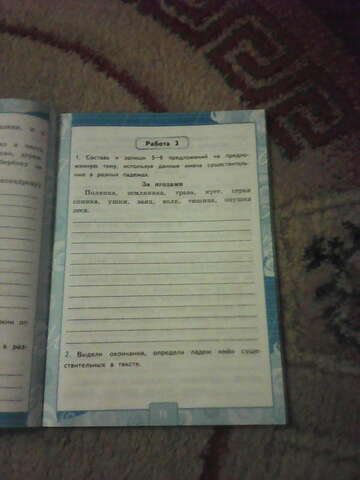 Работа 3
1. Составь и запиши 5–6 предложений на предло-
женную тему, используя данные имена существитель-
ные в разных падежах.
За ягодами
Полянка, земляника, трава, куст, серая
спинка, ушки, заяц, волк, тишина, опушка
леса.
2. Выдели окончания, определи падеж имён суще-
ствительных в тексте.